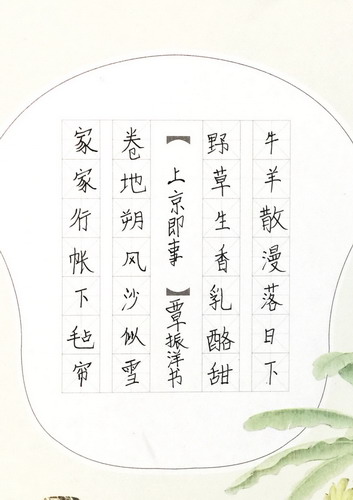 牛羊散漫落日下
野草生香乳酪甜
【上京即事】覃振洋书
卷地朔风沙似雪
家家行帐下毡帘